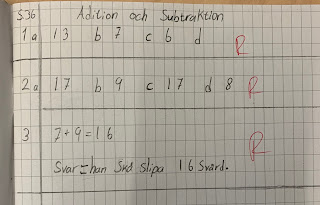 S.36 Adition och Subtraktion
1a 13 b 7 c 6 d R
2a 17 b 9 c 17 d 8 R
3 7+9=16 R
Svar=han Skd Slipa 16 Svärd.